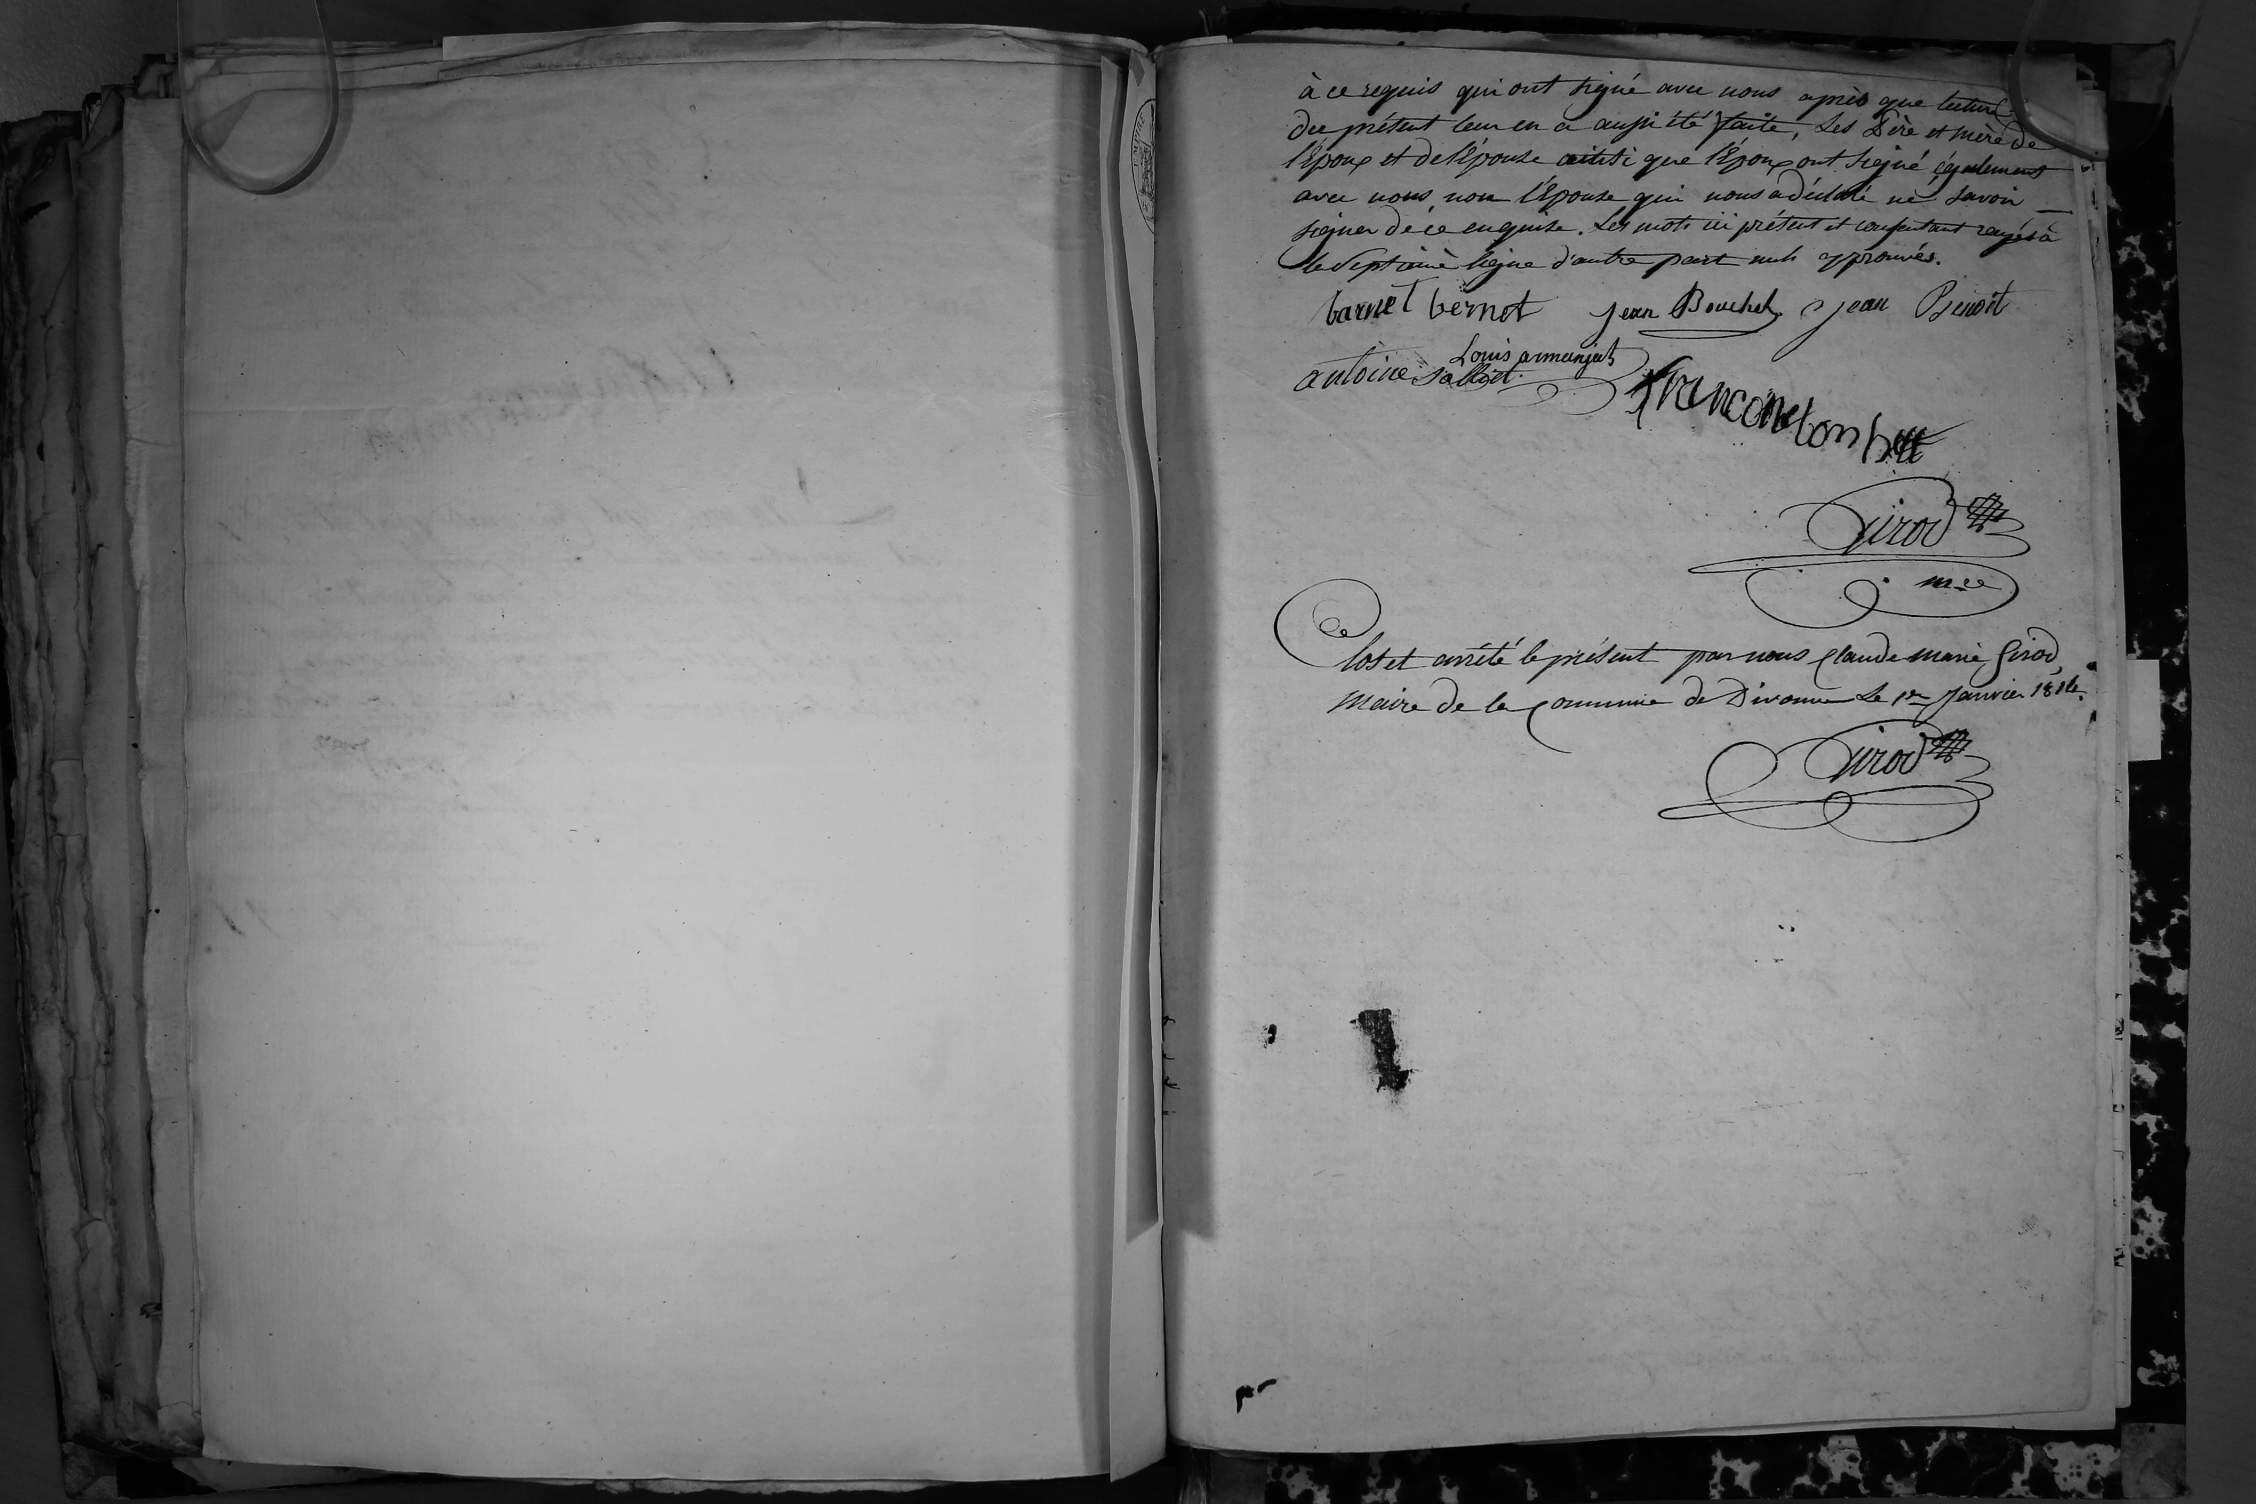 à ce requis qui ont signé avec nous après que lecture
du présent leur en a aussi été faite, Les Père et mère de
l'Époux et de l'Épouse ainsi que l'Époux ont signé également
avec nous, non l'Épouse qui nous a déclaré ne savoir
signer de ce enquise. Les mots ici présent et consentant rayés à
la Septième ligne d'autre part nuls approuvés.
barnet bernot Jean Bouchet Jean Benoit
Louis armanjat
antoine
Girod
m.re
Clos et arrêté le présent par nous Claude Marie Girod,
Maire de la Commune de Divonne Le 1er Janvier
Girod